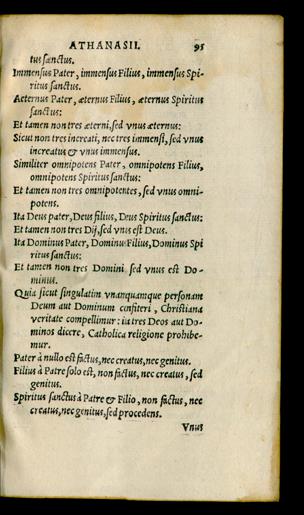 ATHANASII. 95
tus sanctus.
Immensus Pater, immensus Filius, immensus Spi-
ritus sanctus.
Aeternus Pater, æternus Filius, æternus Spiritus
sanctus:
Et tamen non tres æterni, sed vnus æternus:
Sicut non tres increati, nec tres immensi, sed vnus
increatus & vnus immensus.
Similiter omnipotens Pater, omnipotens Filius,
omnipotens Spiritus sanctus:
Et tamen non tres omnipotentes, sed vnus omni-
potens.
Ita Deus pater, Deus filius, Deus Spiritus sanctus:
Et tamen non tres Dij, sed vnus est Deus.
Ita Dominus Pater, Dominus Filius, Dominus Spi
ritus sanctus:
Et tamen non tres Domini sed vnus est Do-
minus.
Quia sicut singulatim vnanquamque personam
Deum aut Dominum confiteri, Christiana
veritate compellimur: ita tres Deos aut Do-
minos dicere, Catholica religione prohibe-
mur.
Pater à nullo est factus, nec creatus, nec genitus.
Filius à Patre solo est, non factus, nec creatus, sed
genitus.
Spiritus sanctus à Patre & Filio, non factus, nec
creatus, nec genitus, sed procedens.
Vnus